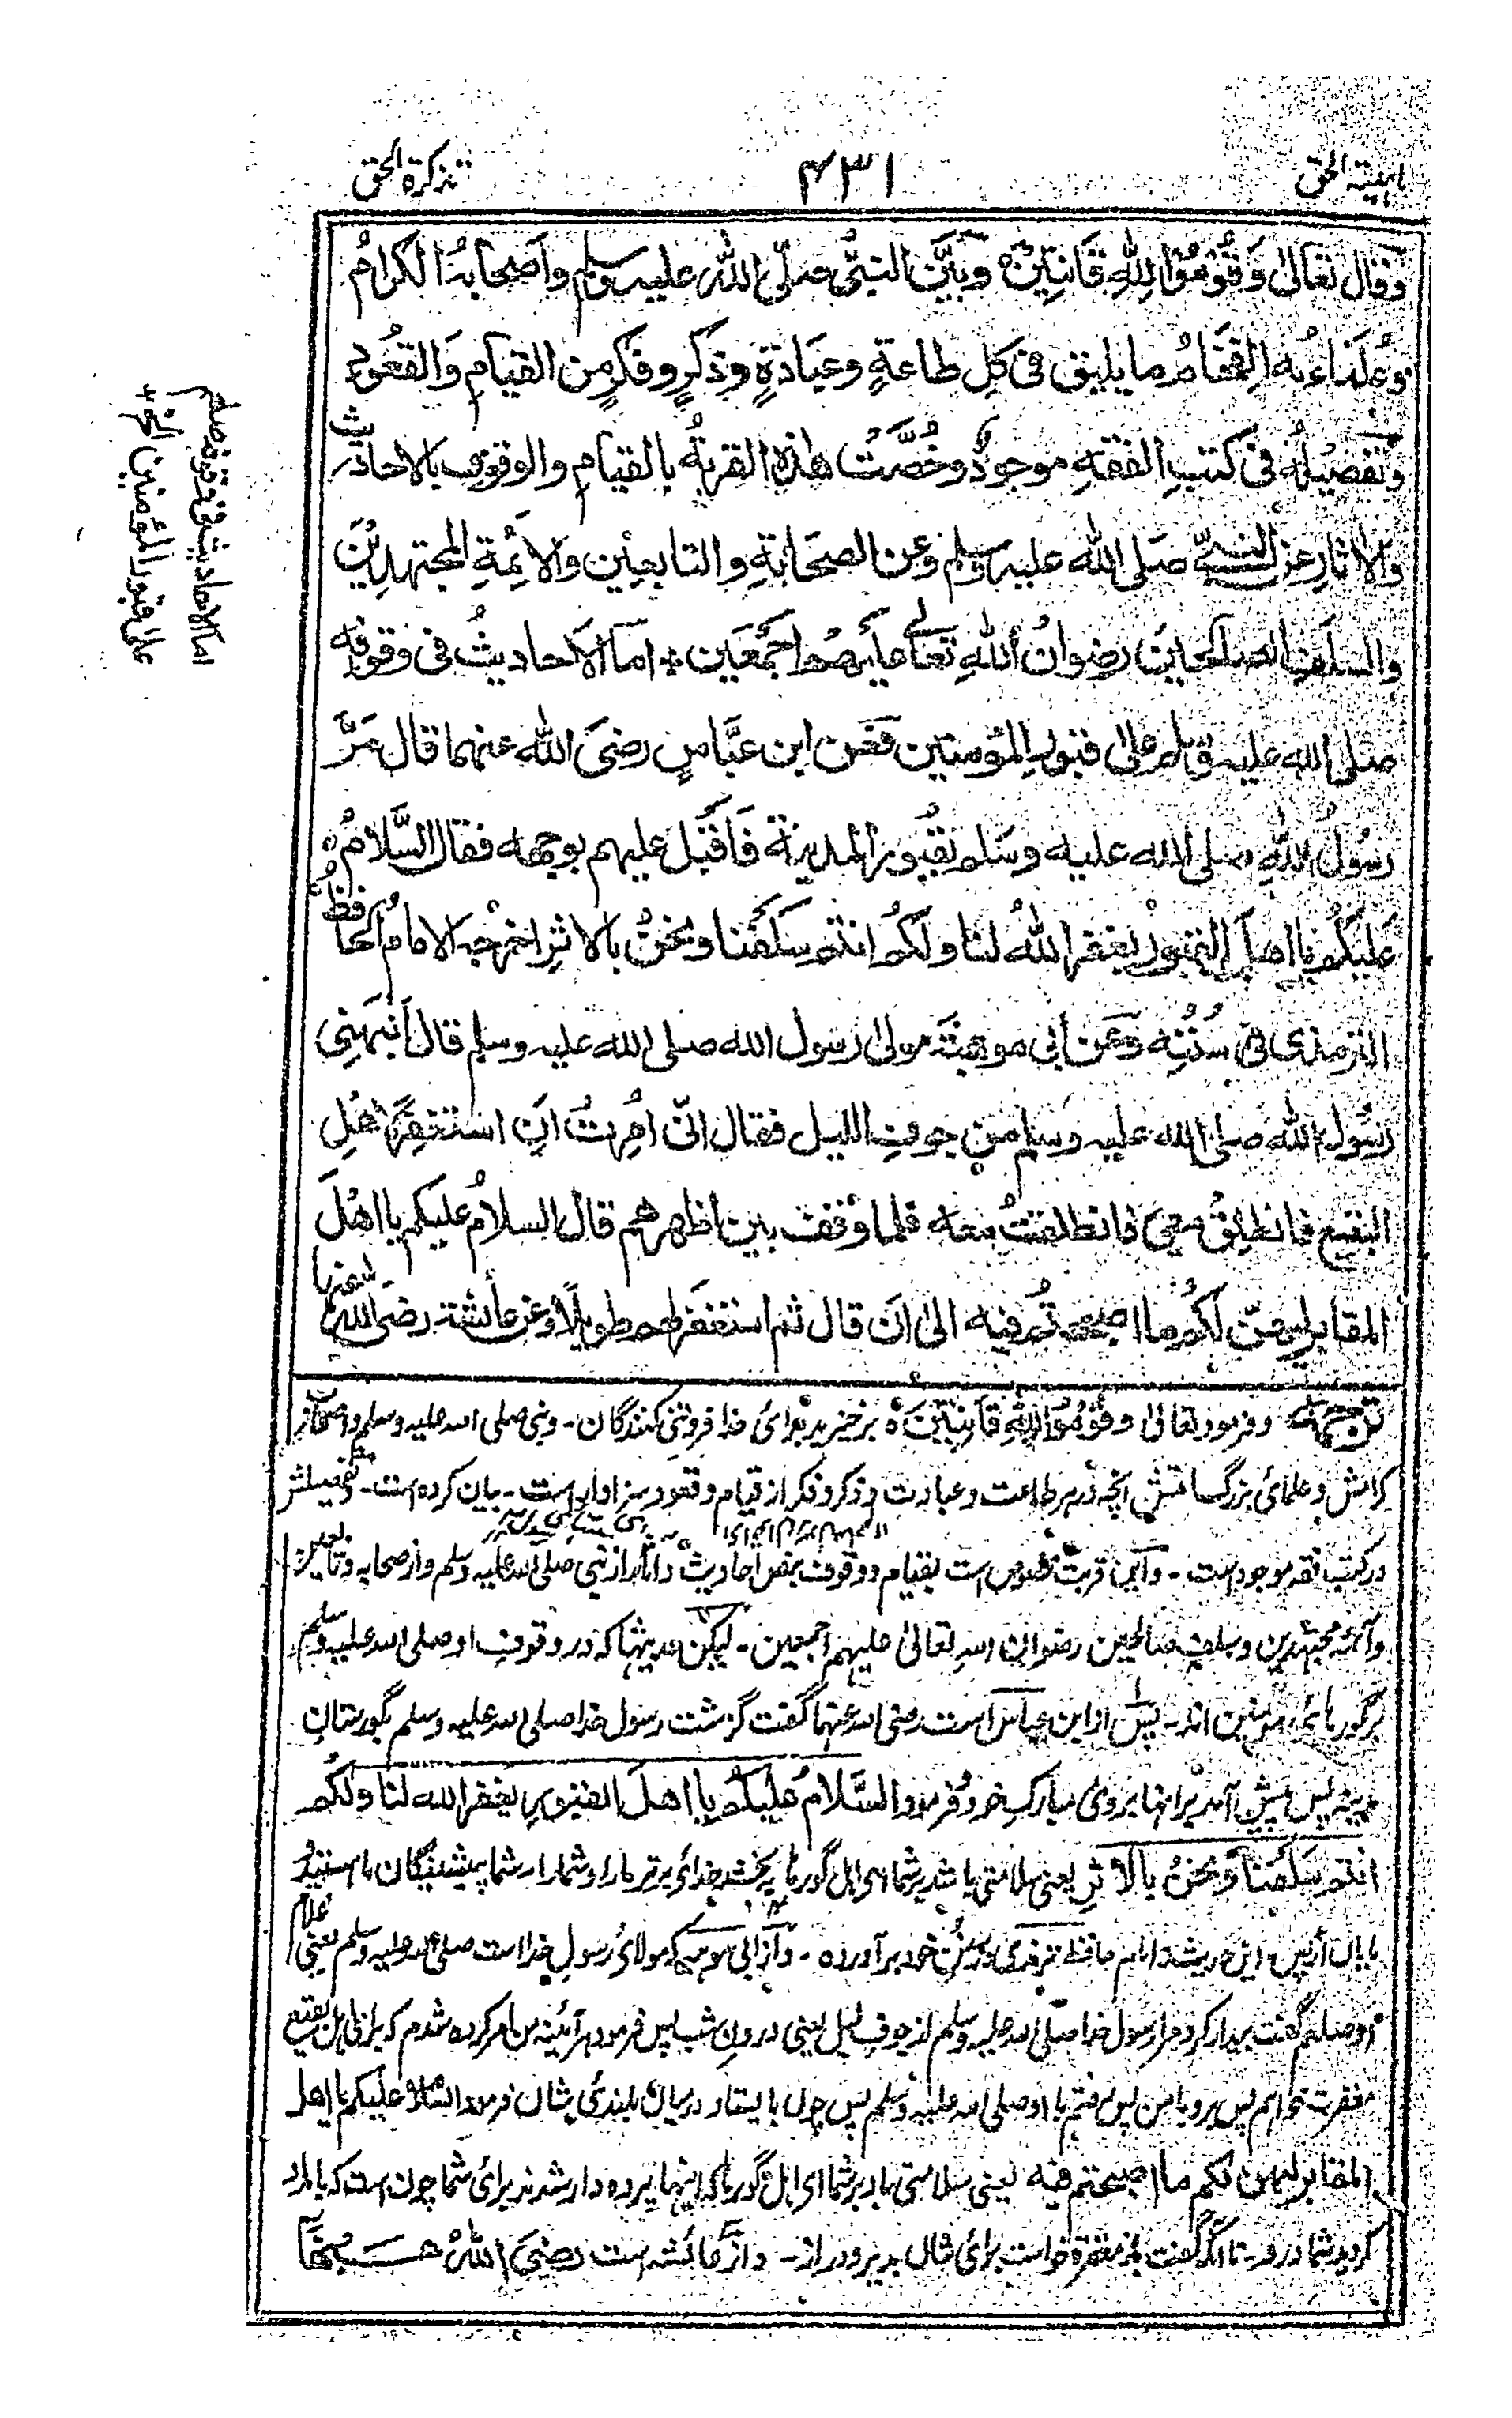 تذکرة الحق
۴۳۱
وقال تعالى وَقُوْمُوْا لِلّٰهِ قَانِتِيْنَ ٥ وبَيَّنَ النبيُّ صلّى الله عليه وسلم وأصحابهُ الكرامُ
وعُلَمَاءُ به الفِخَامُ ما يليق في كلِّ طاعةٍ وعبادةٍ وذكرٍ وفكرٍ من القيامِ وَالقعُودِ
وتفصيلُه في كتبِ الفقهِ موجودٌ وخُصَّتْ هذه القربةُ بالقيامِ والوقوفِ بالاحاديث
والاثارِ عن النبيِّ صَلى الله عليه وسلم وعن الصحابةِ والتابعين والائمةِ المجتهدِيْنَ
والسلفِ الصالحين رضوانُ اللهِ تعالى عليهم اجمعين ٭ امّا الاحاديثُ في وقوفه
صلى الله عليه وسلم على قبور المؤمنين فعن ابن عبَّاسٍ رضى الله عنهما قال مَرَّ
رسُولُ اللهِ صلى الله عليه وسَلم بقُبُور المدينة فَاَقْبَل عليهم بوجهه فقال السَّلامُ
عليكُم يا اهلَ القبور يغفر اللهُ لنا ولكُم انتم سَلَفُنا ونحنُ بالاثرِ اخرجه الامامُ الحافظُ
الترمذى فى سُنَنِه وعن أبى مويهبة مولى رسول الله صلى الله عليه وسلم قال أنبهَنِى
رسُول الله صلى الله عليه وسلم من جوفِ الليل فقال انّى اُمِرتُ اَن استغفِرَ لاهْلِ
البقيع فانطلِقْ معى فانطلقتُ معه فلما وقف بين اظهرهم قال السلامُ عليكم يا اهْلَ
المقابر ليهنّ لكُم ما اصبحتُم فيه الى اَن قال ثم استغفَر لهم طويلًا وعن عائشة رضى الله عنها
ترجمه وفرمود تعالى وقُوْمُوْا لِلّٰهِ قَانِتِيْنَ ٥ برخیزید برائ خدا فروتنی کنندگان - ونبی صلى الله عليه وسلم واصحاب
کرامش وعلمائ بزرگ امتش آنچه در هر طاعت وعبادت و ذکر وفکر از قیام وقعود سزاوار است - بیان کرده است - وتفصیلش
در کتب فقه موجود است - وایں قربت مخصوص است بقیام ووقوف ببعض احادیث وآثار از نبی صلى الله عليه وسلم واز صحابه وتابعین
وائمه مجتهدین وسلف صالحین رضوان الله تعالى عليهم اجمعين - لیکن حدیثها که در وقوف او صلى الله عليه وسلم
بر گورهائ مومنین اند - پس از ابن عباس است رضى الله عنهما گفت گزشت رسول خدا صلى الله عليه وسلم بگورستان
مدینه پس پیش آمد بر انها بروی مبارک خود وفرمود السَّلامُ عليكم يا اهلَ القبورِ يغفر الله لنا ولكُم
انتم سَلَفُنا ونحنُ بالاثرِ یعنی سلامتی باشد بر شما اى اهل گورها بخشد خدائ برتر ما را وشما را شما پیشینیگان ما هستند
ما بآں اثر پس این حدیث را امام حافظ ترمذی در سنن خود بر آورده - واز ابی مویهبه که مولائ رسول خدا است صلى الله عليه وسلم یعنی غلام
او صلعم گفت بیدار کرد مرا رسول خدا صلى الله عليه وسلم از جوف لیل یعنی درون شب پس فرمود هر آئینه من امر کرده شدم که برائ اهل بقیع
مغفرت خواهم پس برو با من پس رفتم با او صلى الله عليه وسلم پس چوں باستاد درمیان بلندئ شان فرمود السّلام عليكم يا اهل
المقابر ليهن لكم ما اصبحتم فيه یعنی سلامتی باد بر شما ای اهل گورها که اینها پرده دار شدند برائ شما چون است که بامداد
کردید شما در و - تا آنکه گفت باز مغفرة خواست برائ شاں بدیر ودراز - واز عائشه است رضى اللهُ عنها
اما الاحاديث فى وقوفه صلعم
على قبور المؤمنين الخ ١٢